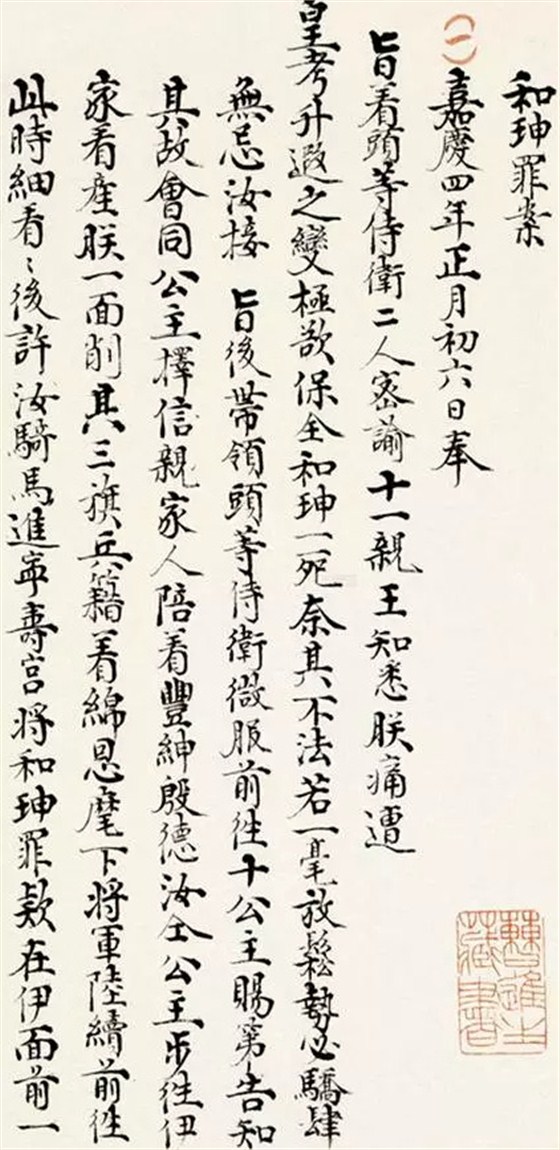 和珅罪案
(一)嘉慶四年正月初六日奉
旨着頭等侍衛二人密諭十一親王知悉朕痛遭
皇考升遐之變極欲保全和珅一死奈其不法若一毫放鬆勢必驕肆
無忌汝接　旨後帶領頭等侍衛微服前往十公主賜第告知
其故會同公主擇信親家人陪着豐紳殷德汝仝公主步往伊
家看產朕一面削其三旗兵籍着綿恩麾下將軍陸續前往
此時細看〻後許汝騎馬進寧壽宮將和珅罪款在伊面前一
藏書